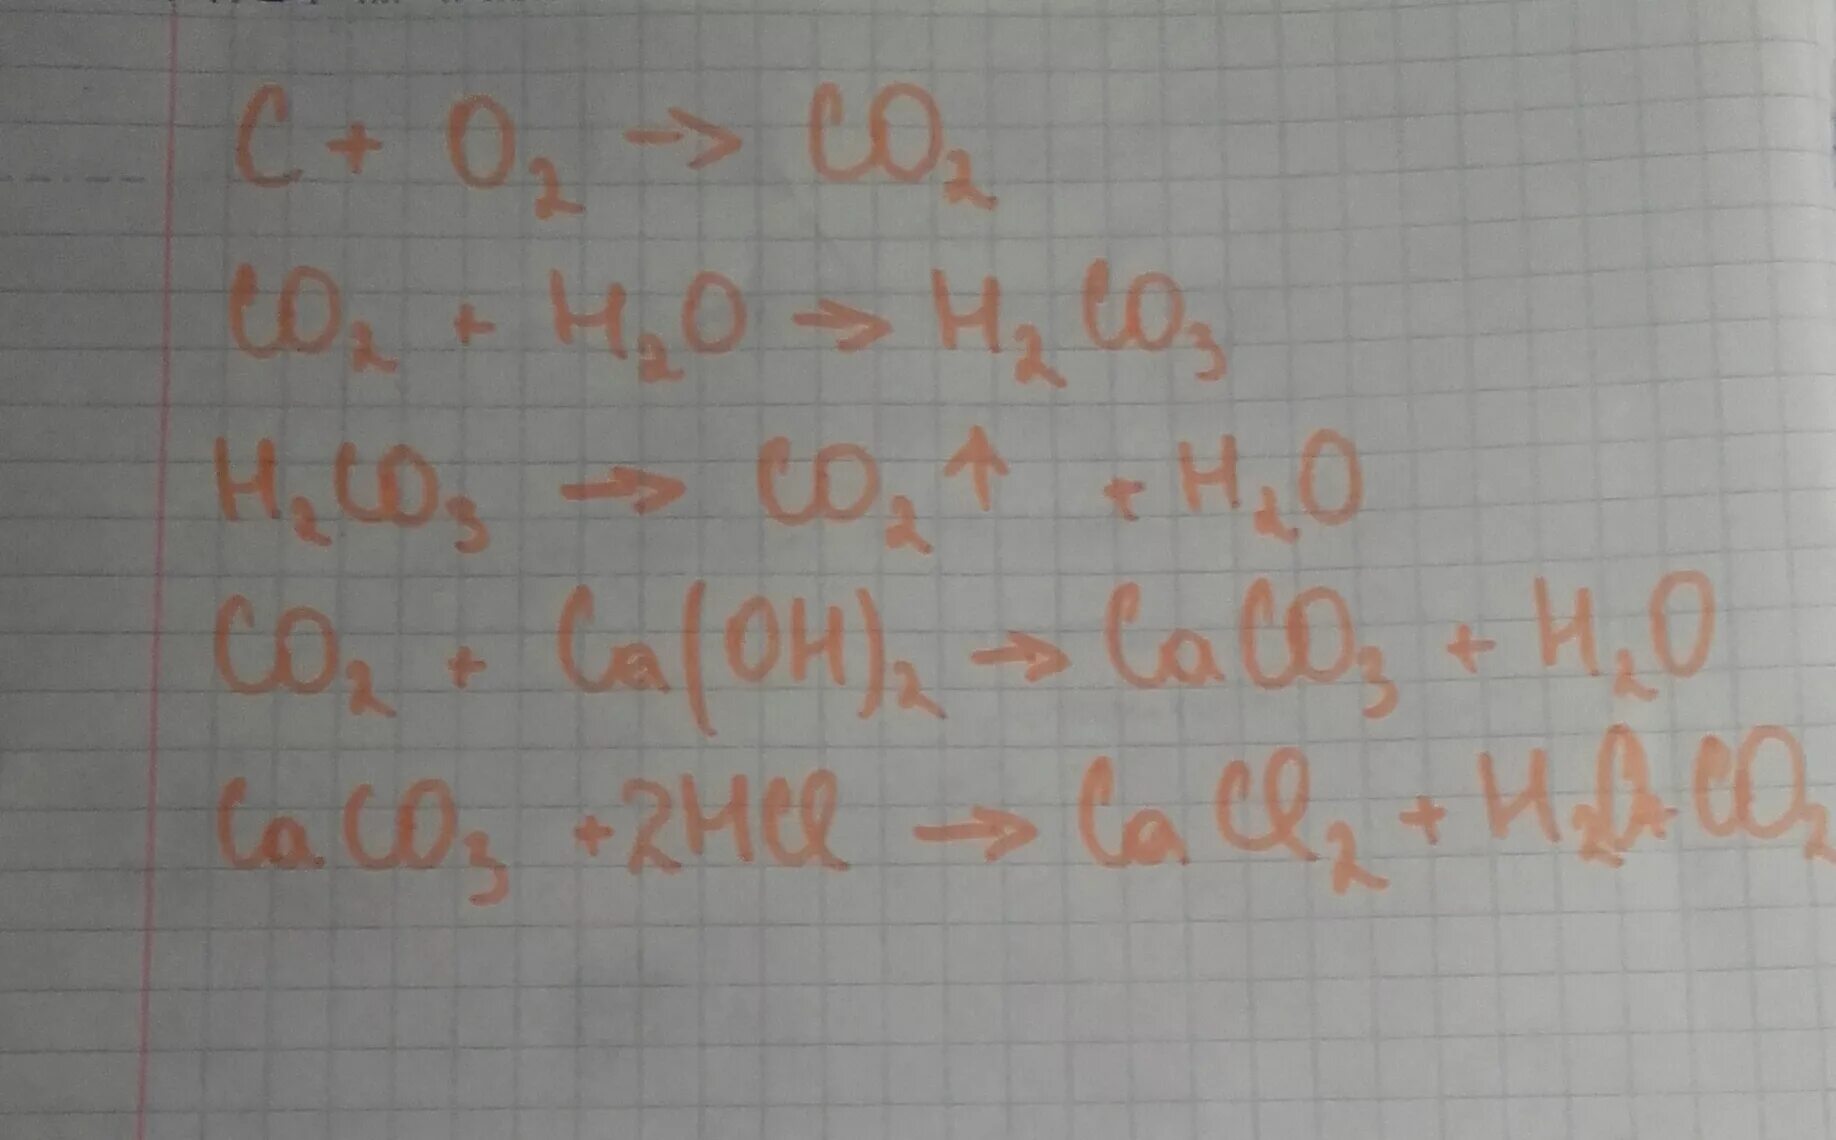 C + O₂ → CO₂
CO₂ + H₂O → H₂CO₃
H₂CO₃ → CO₂↑ + H₂O
CO₂ + Ca(OH)₂ → CaCO₃ + H₂O
CaCO₃ + 2HCl → CaCl₂ + H₂O + CO₂